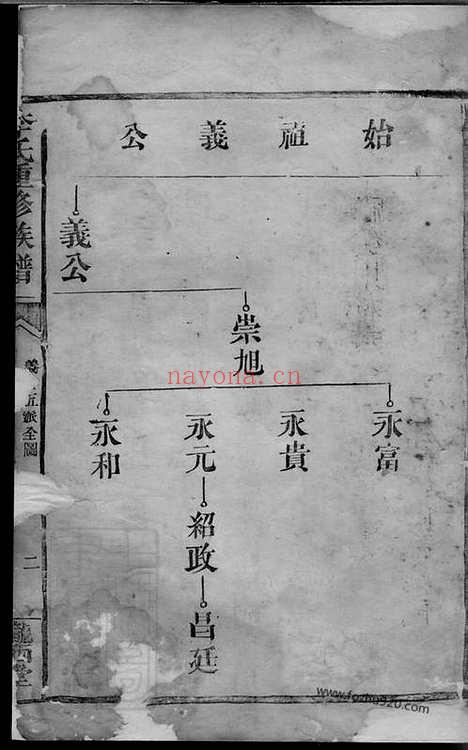 始祖義公
義公
崇旭
永富
永貴
永元
紹政
昌廷
永和
李氏重修族譜
五派全圖
二
nayona.cn
www.fozhu920.com